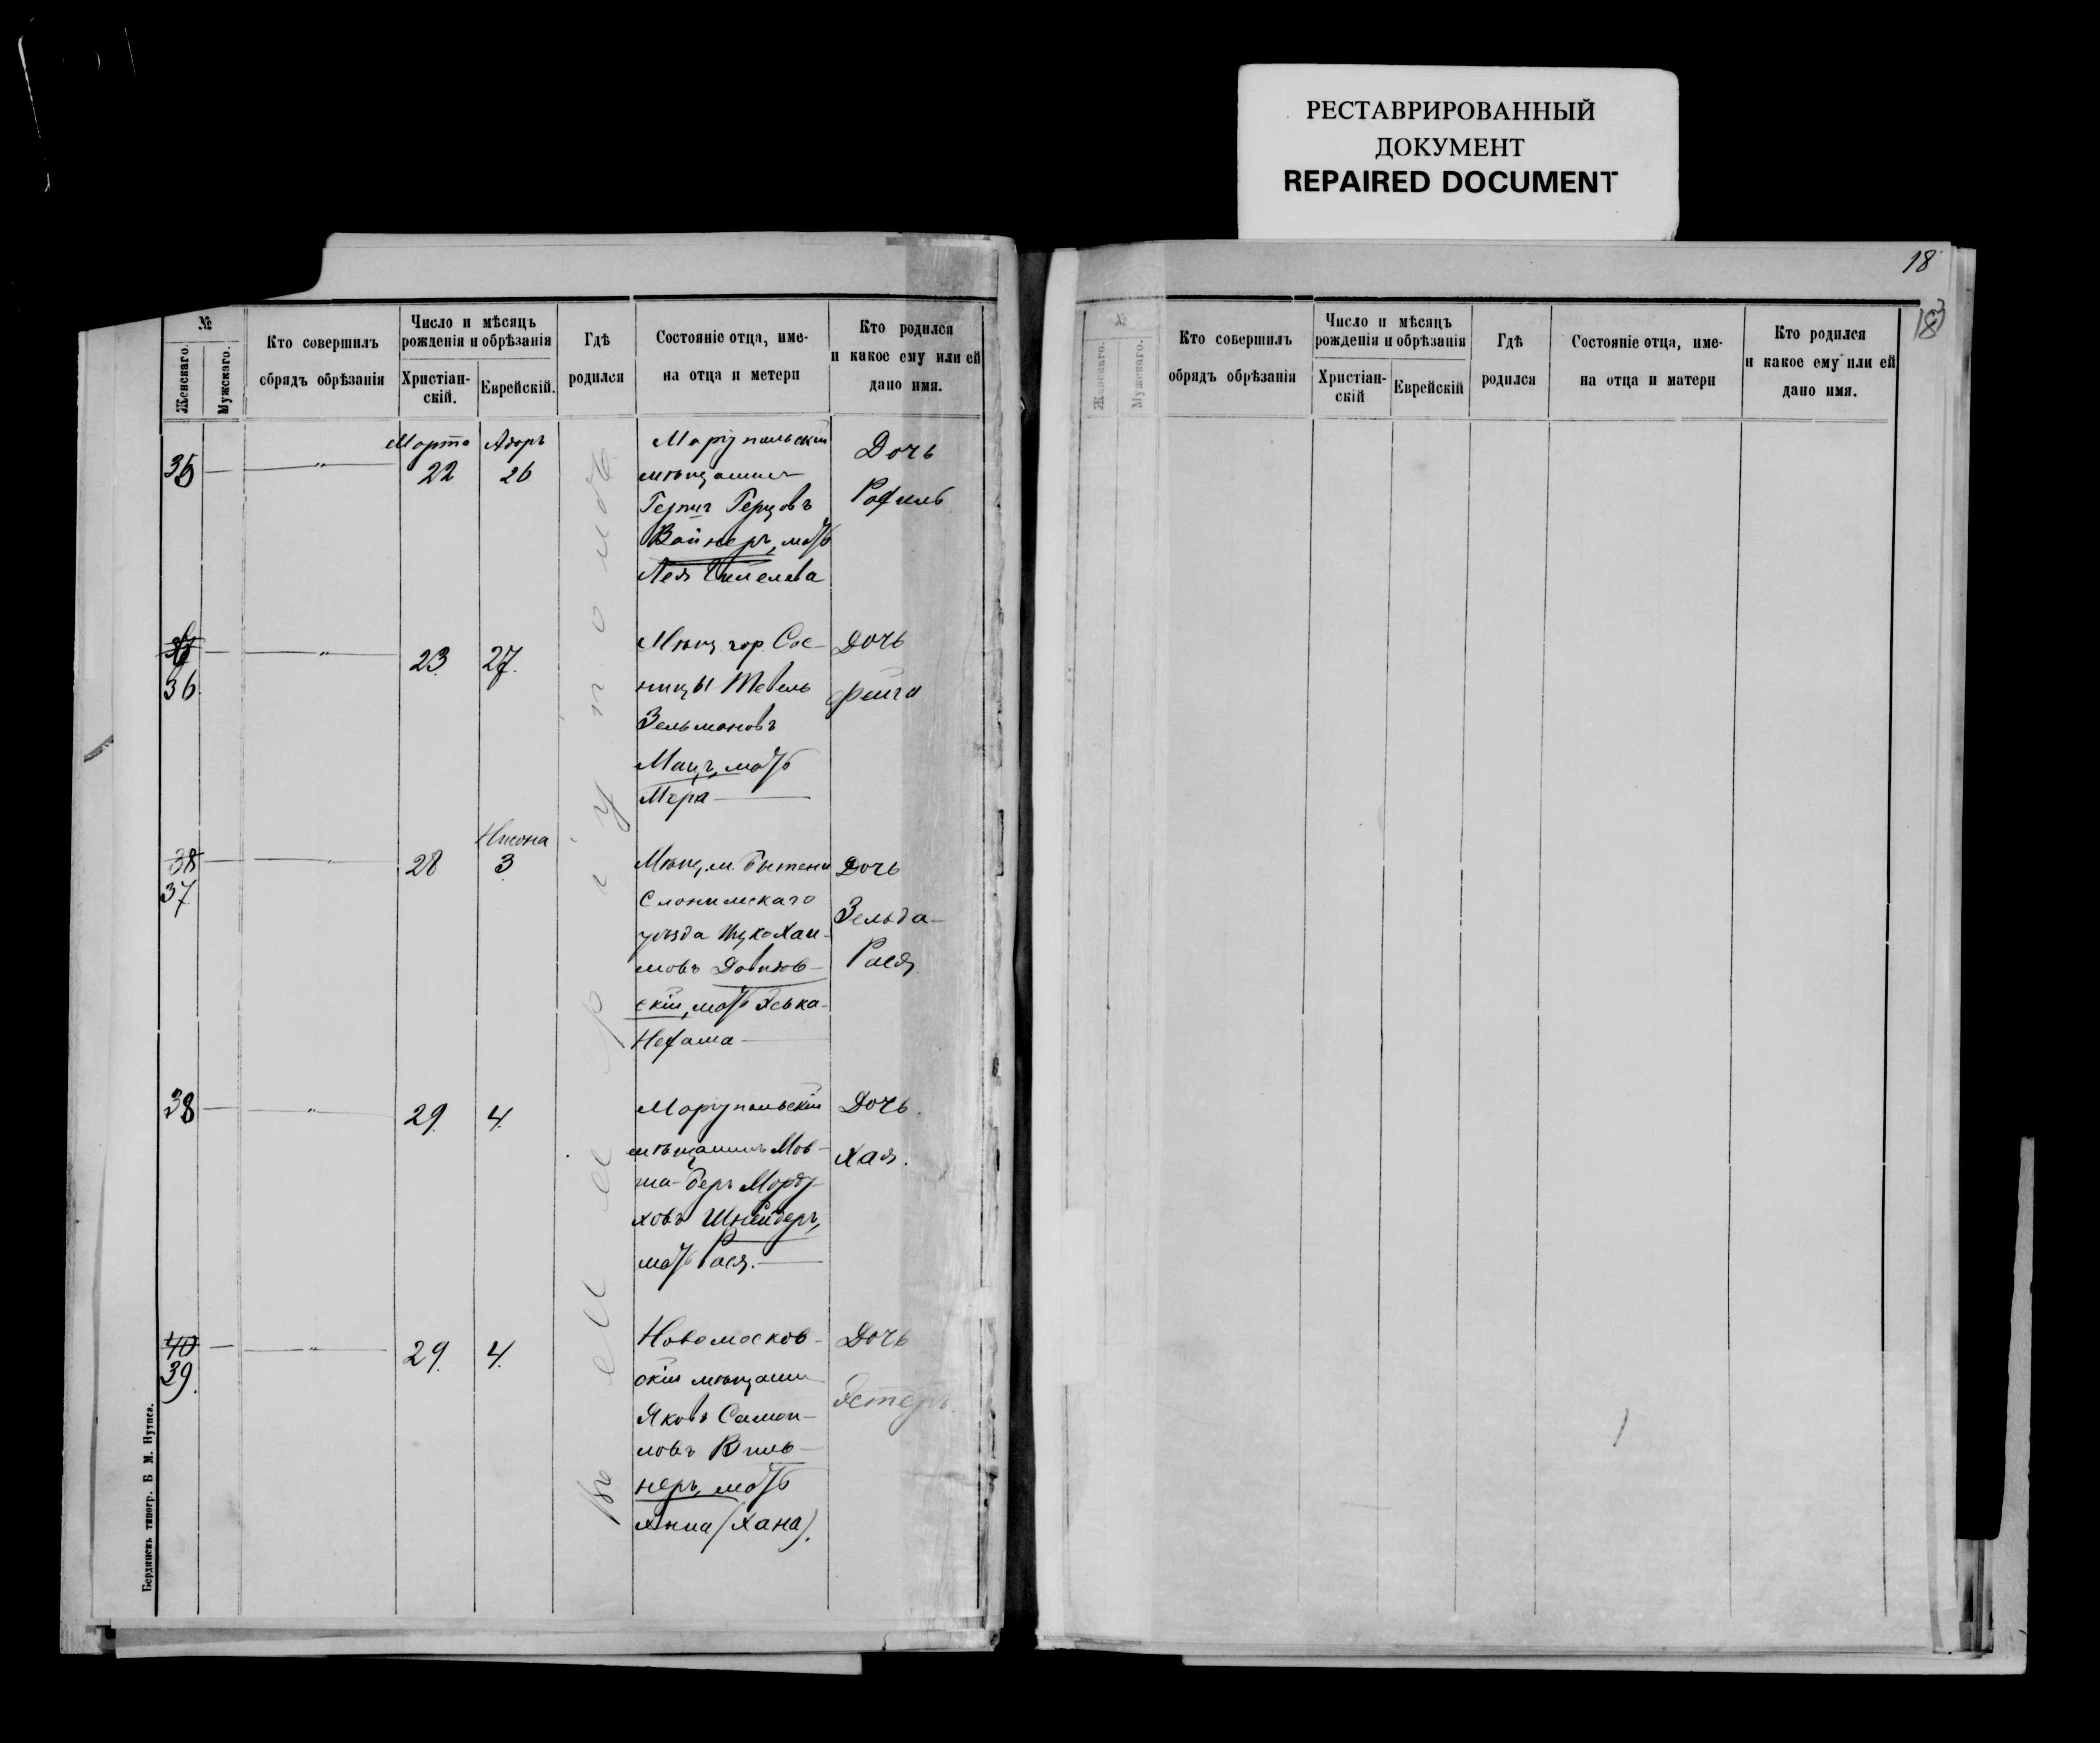 РЕСТАВРИРОВАННЫЙ
ДОКУМЕНТ
REPAIRED DOCUMENT
№
Женскаго.
Мужскаго.
Кто совершилъ
обрядъ обрѣзанія
Число и мѣсяцъ
рожденія и обрѣзанія
Христіан-
скій.
Еврейскій.
Гдѣ
родился
Состояніе отца, име-
на отца и метери
Кто родился
и какое ему или ей
дано имя.
въ Маріуполѣ
35 — — " —
Марта
22
Адоръ
26
Маріупольскій
мѣщанинъ
Герцовъ
Вайнеръ, мать
Лея
Дочь
Рафиль
36 — — " —
23
27.
Мѣщ. гор. Сос-
ницы Тевель
Зельмановъ
Манъ, мать
Мера —
Дочь
Фейга
38 — — " —
37
28
Нисона
3
Мѣщ. м. Бытени
Слонимскаго
уѣзда Ицко Хаи-
мовъ Давидов-
скій, мать Яська-
Нехама —
Дочь
Зельда-
Рася
38 — — " —
29.
4.
Маріупольскій
мѣщанинъ Мов-
ша-Беръ Морду-
ховъ Шнейдеръ,
мать Рася. —
Дочь.
Хая.
40 — — " —
39.
29.
4.
Новомосков-
скій мѣщанин
Яковъ Самой-
ловъ Виль-
неръ, мать
Анна (Хана).
Дочь
Эстеръ.
Бердянскъ типогр. Б. М. Нутиса.
18
18
№
Женскаго.
Мужскаго.
Кто совершилъ
обрядъ обрѣзанія
Число и мѣсяцъ
рожденія и обрѣзанія
Христіан-
скій
Еврейскій
Гдѣ
родился
Состояніе отца, име-
на отца и матери
Кто родился
и какое ему или ей
дано имя.